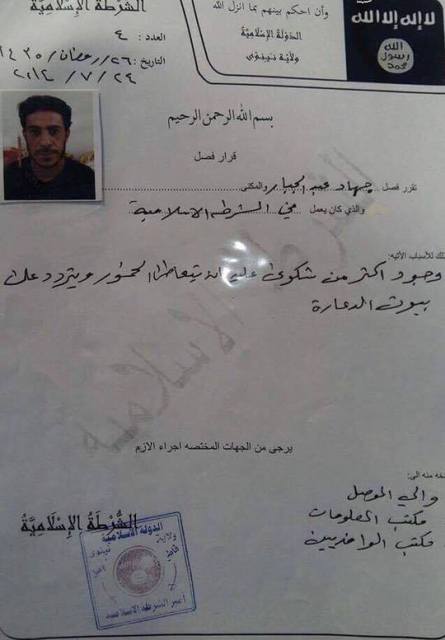 الشرطة الإسلامية
العدد : ٤
التاريخ: ٢٦/رمضان/١٤٣٥
٢٠١٤/٧/٢٤
وأن احكم بينهم بما انزل الله
الدولة الإسلامية
ولاية نينوى
لا إله إلا الله
الله
رسول
محمد
بسم الله الرحمن الرحيم
قرار فصل
تقرر فصل / جهاد عبد الجبار والمكنى
والذي كان يعمل في الشرطة الاسلامية
للأسباب الأتيه:
وجود اكثر من شكوى يتعاطى الخمور ويتردد على
بيوت الدعارة
يرجى من الجهات المختصه اجراء الازم
منه الى:
والي الموصل
مكتب المعلومات
مكتب
الشرطة الإسلامية
الدولة الاسلامية
ولاية
نينوى
أمير الشرطة الاسلامية
الشرطة الاسلامية